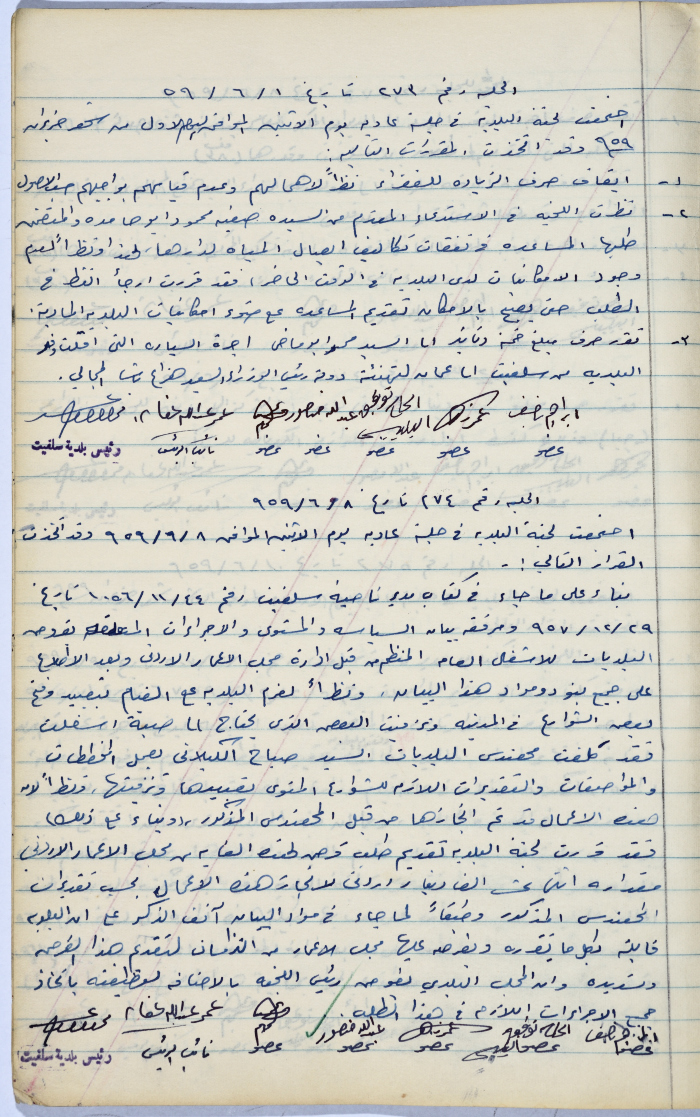 الجلسة رقم ٢٧٣ تاريخ ١ / ٦ / ٥٩
اجتمعت لجنة البلدية في جلسة عادية يوم الاثنين الموافق لليوم الاول من شهر حزيران
٩٥٩ وقد اتخذت المقررات التالية :
١- ايقاف صرف الزيادة للفقراء نظراً لاهمالهم وعدم قيامهم بواجبهم حسب الاصول
٢- نظرت اللجنة في الاستدعاء المقدم من السيده صفيه محمود ابو حامده والمتضمن
طلبها المساعده في نفقات تكاليف ايصال المياه لدارها، لهذا ونظراً لعدم
وجود الامكانيات لدى البلدية في الوقت الحاضر، فقد قررت ارجاء النظر في
الطلب حتى يصبح بالامكان تقديم المساعده على ضوء امكانيات البلدية المادية
٣- تقرر صرف مبلغ خمسة دنانير الى السيد ابو ماضي اجرة السيارة التي اقلت وفد
البلدية من سلفيت الى عمان لتهنئة دولة رئيس الوزراء السيد هزاع باشا المجالي .
ابراهيم عبدالله منصور عمر عبدالله
عضو عضو عضو عضو عضو نائب الرئيس رئيس بلدية سلفيت
الجلسة رقم ٢٧٤ تاريخ ٨ / ٦ / ٩٥٩
اجتمعت لجنة البلدية في جلسة عادية يوم الاثنين الموافق ٨ / ٩ / ٩٥٩ وقد اتخذت
القرار التالي : -
بناء على ما جاء في كتاب مدير ناحية سلفيت رقم ٤٤ / ١١ / ١٠٥٦ تاريخ
٢٩ / ١٢ / ٩٥٧ ومرفقه بيان السياسة والمستوى والاجراءات المتعلقة بقروض
البلديات للاشغال العامه المنظم من قبل ادارة مجلس الاعمار الاردني وبعد الاطلاع
على جميع بنود ومواد هذا البيان، ونظراً لعزم البلدية على القيام بتعبيد وفتح
بعض الشوارع في المدينه وتزفيت البعض الذي يحتاج الى اسفلت
فقد كلفت مهندس البلديات السيد صباح الكيلاني بعمل المخططات
والمواصفات والتقديرات اللازمه للشوارع المنوي تعبيدها وتزفيتها، ونظراً لان
هذه الاعمال قد تم انجازها من قبل المهندس المذكور، وبناء على ذلك
فقد قررت لجنة البلدية تقديم طلب قرض لهذه الغايه من مجلس الاعمار الاردني
مقداره اثني عشر الف دينار اردني لانجاز هذه الاعمال بحسب تقديرات
المهندس المذكور وطبقاً لما جاء في مواد البيان آنف الذكر على ان البلدية
قابلة بكل ما يقرره ويفرضه عليها مجلس الاعمار من الضمان لتقديم هذا القرض
وتسديده وان المجلس البلدي يفوض رئيس اللجنه بالاضافه لوظيفته باتخاذ
جميع الاجراءات اللازمه في هذا الطلب
ابراهيم عبدالله منصور عمر عبدالله
عضو عضو عضو عضو عضو نائب الرئيس رئيس بلدية سلفيت